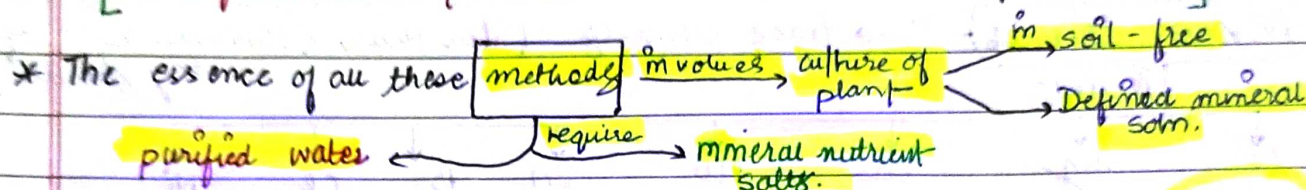 in soil-free
* The essence of all these methods involves culture of
plant
Defined mineral
soln.
require
purified water
mineral nutrient
salts.